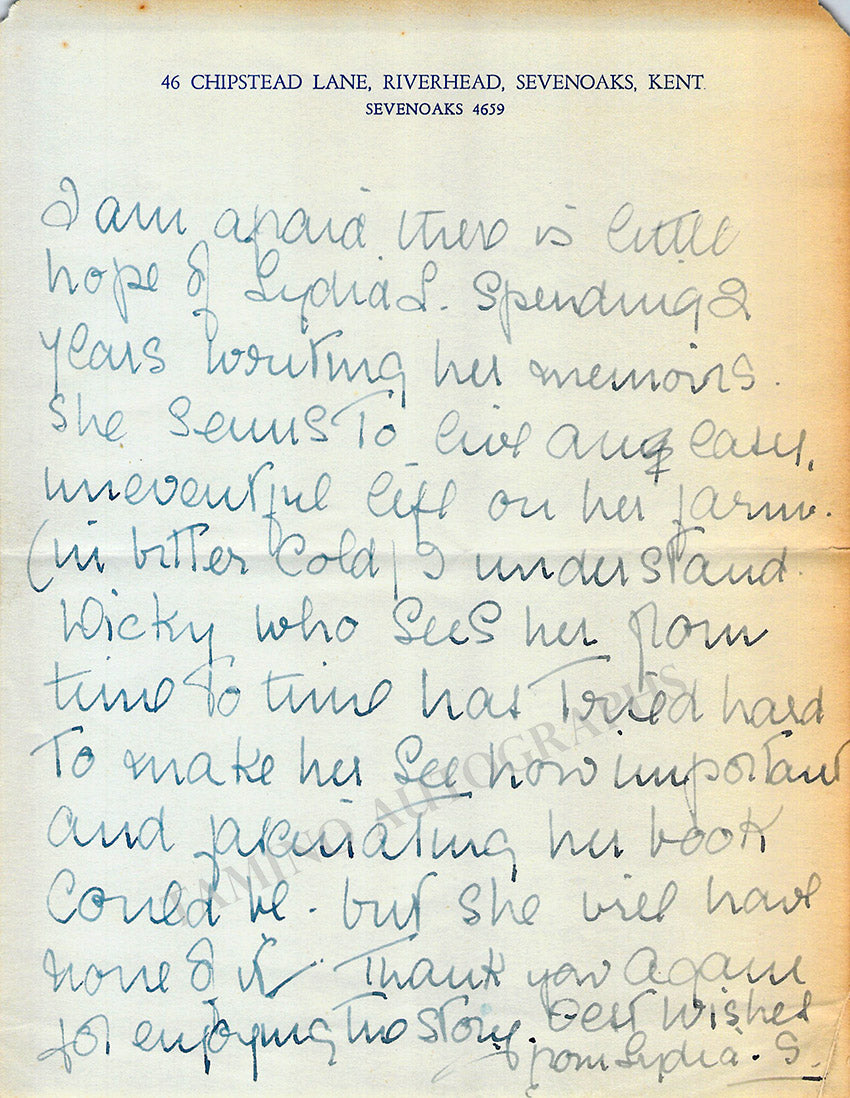 46 CHIPSTEAD LANE, RIVERHEAD, SEVENOAKS, KENT.
SEVENOAKS 4659
I am afraid there is little
hope of Lydia L. Spending 2
years writing her memoirs.
She seems to live an easy,
uneventful life on her farm.
(in bitter Cold) I understand.
Wicky who sees her from
time to time has tried hard
To make her see how important
and fascinating her book
Could be. but she will have
none of it. Thank you again
for enjoying the story. Best Wishes
from Lydia. S.
TAMINO AUTOGRAPHS